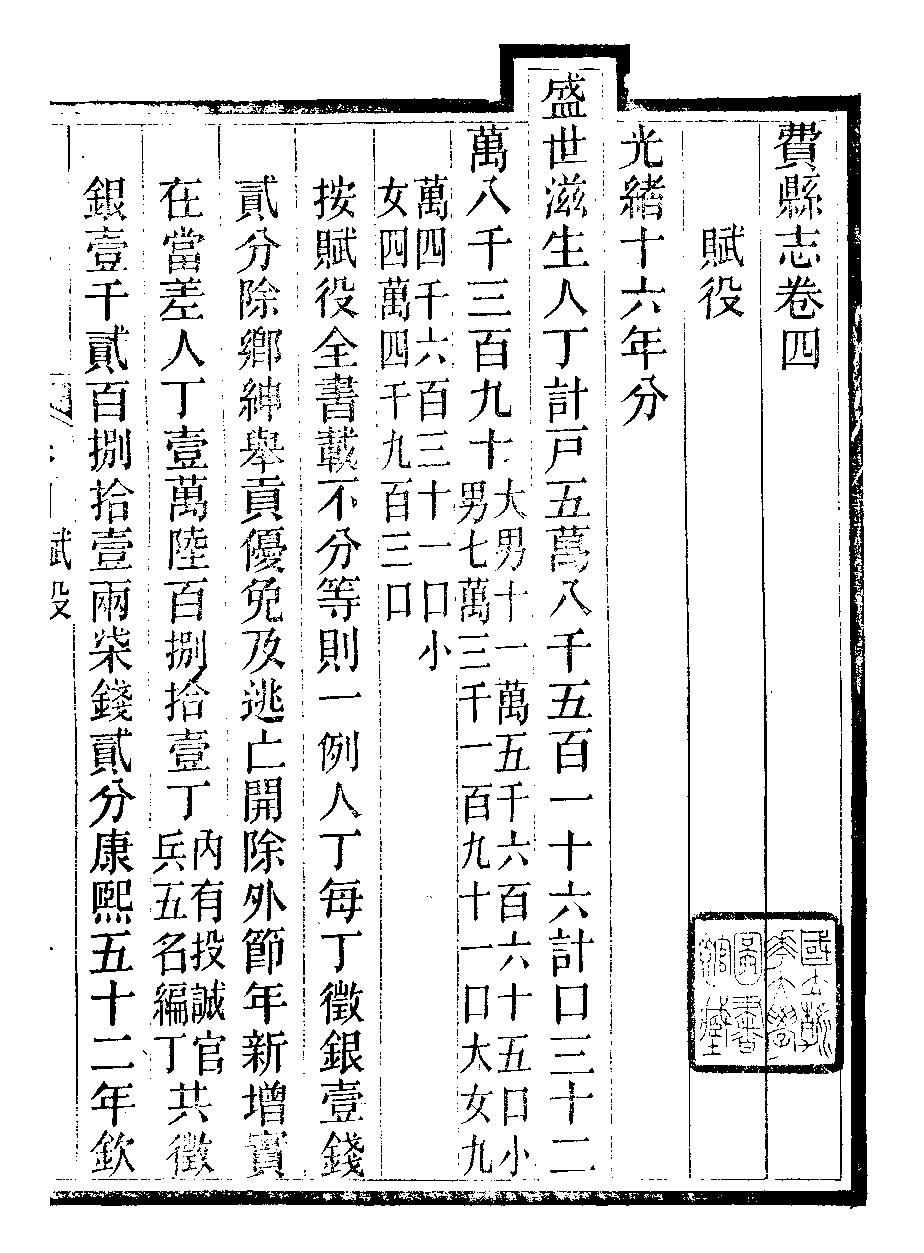 費縣志卷四
賦役
光緒十六年分
盛世滋生人丁計戸五萬八千五百一十六計口三十二
萬八千三百九十大男十一萬五千六百六十五口小
男七萬三千一百九十一口大女九
萬四千六百三十一口小
女四萬四千九百三口
按賦役全書載不分等則一例人丁每丁徵銀壹錢
貳分除鄉紳舉貢優免及逃亡開除外節年新增實
在當差人丁壹萬陸百捌拾壹丁內有投誠官
兵五名編丁共徵
銀壹千貳百捌拾壹兩柒錢貳分康熙五十二年欽
賦役